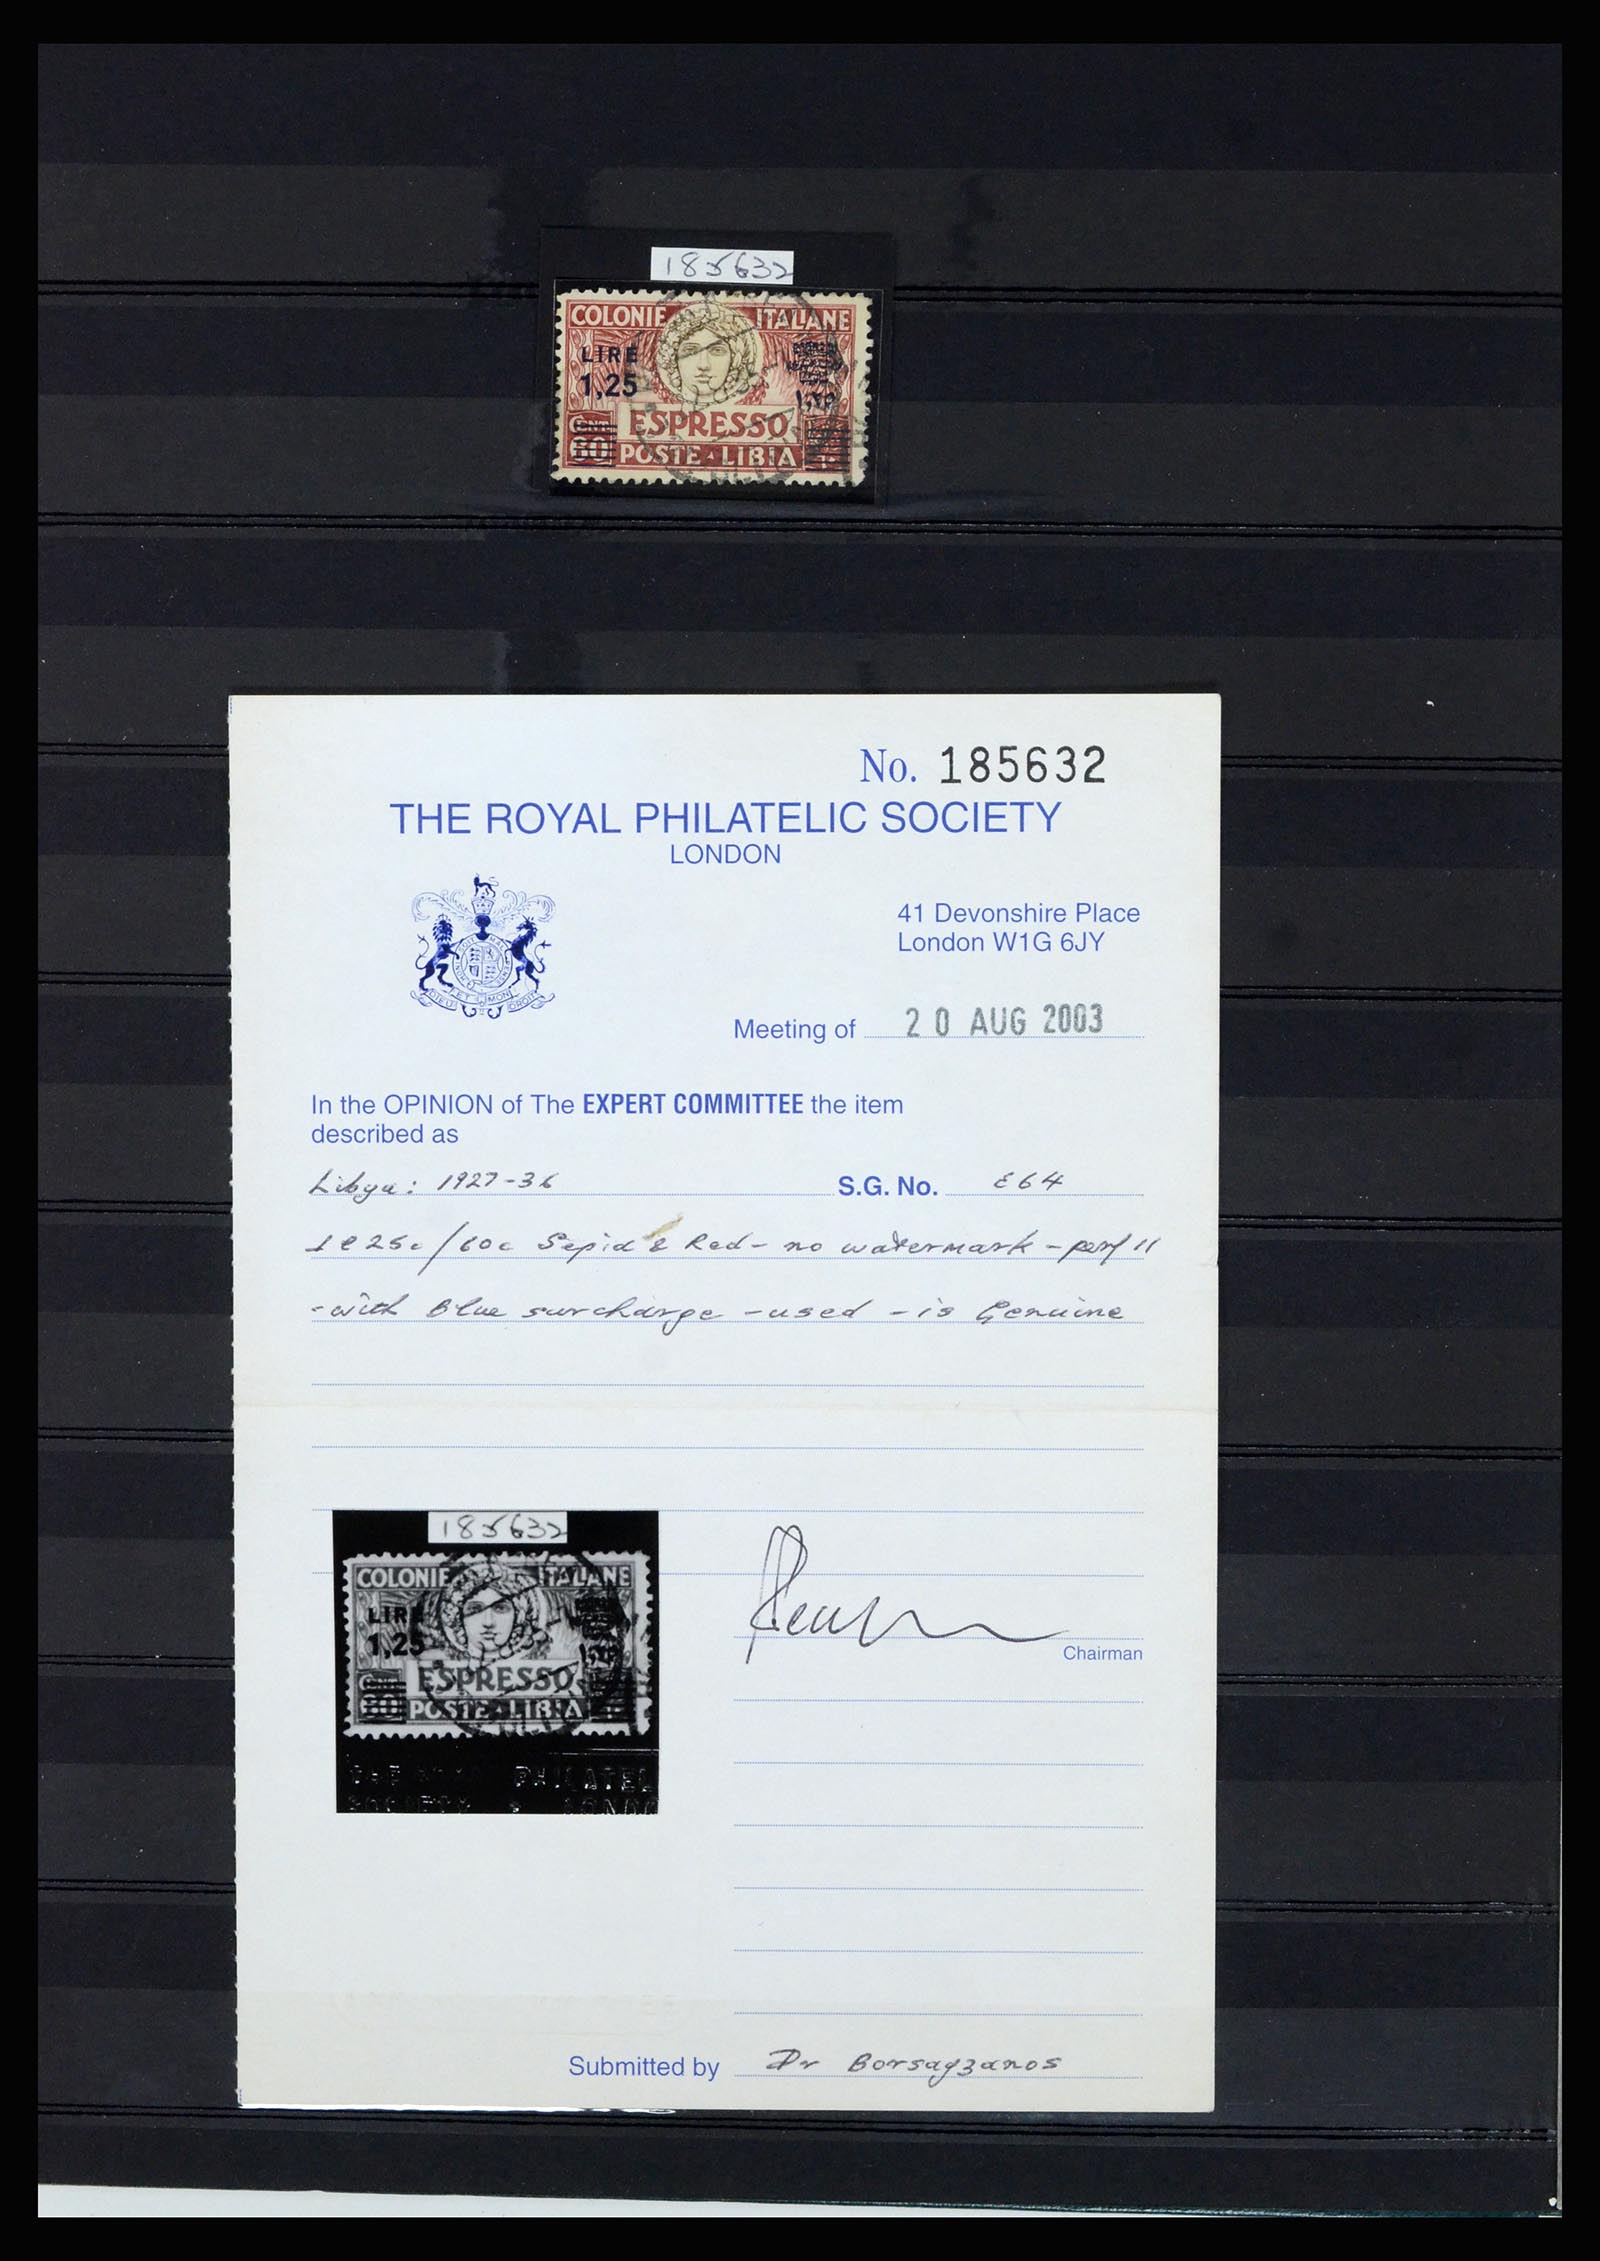 185632
COLONIE ITALIANE
LIRE
1,25
ESPRESSO
CENT
60
POSTE LIBIA
No. 185632
THE ROYAL PHILATELIC SOCIETY
LONDON
41 Devonshire Place
London W1G 6JY
DIEU ET MON DROIT
Meeting of 20 AUG 2003
In the OPINION of The EXPERT COMMITTEE the item
described as
Libya: 1927-36 S.G. No. E64
1l 25c/60c Sepia & Red - no watermark - perf 11
- with Blue surcharge - used - is Genuine
185632
COLONIE ITALIANE
LIRE
1,25
ESPRESSO
60
POSTE LIBIA
PHILATEL
Chairman
Submitted by Dr Borsagzanos